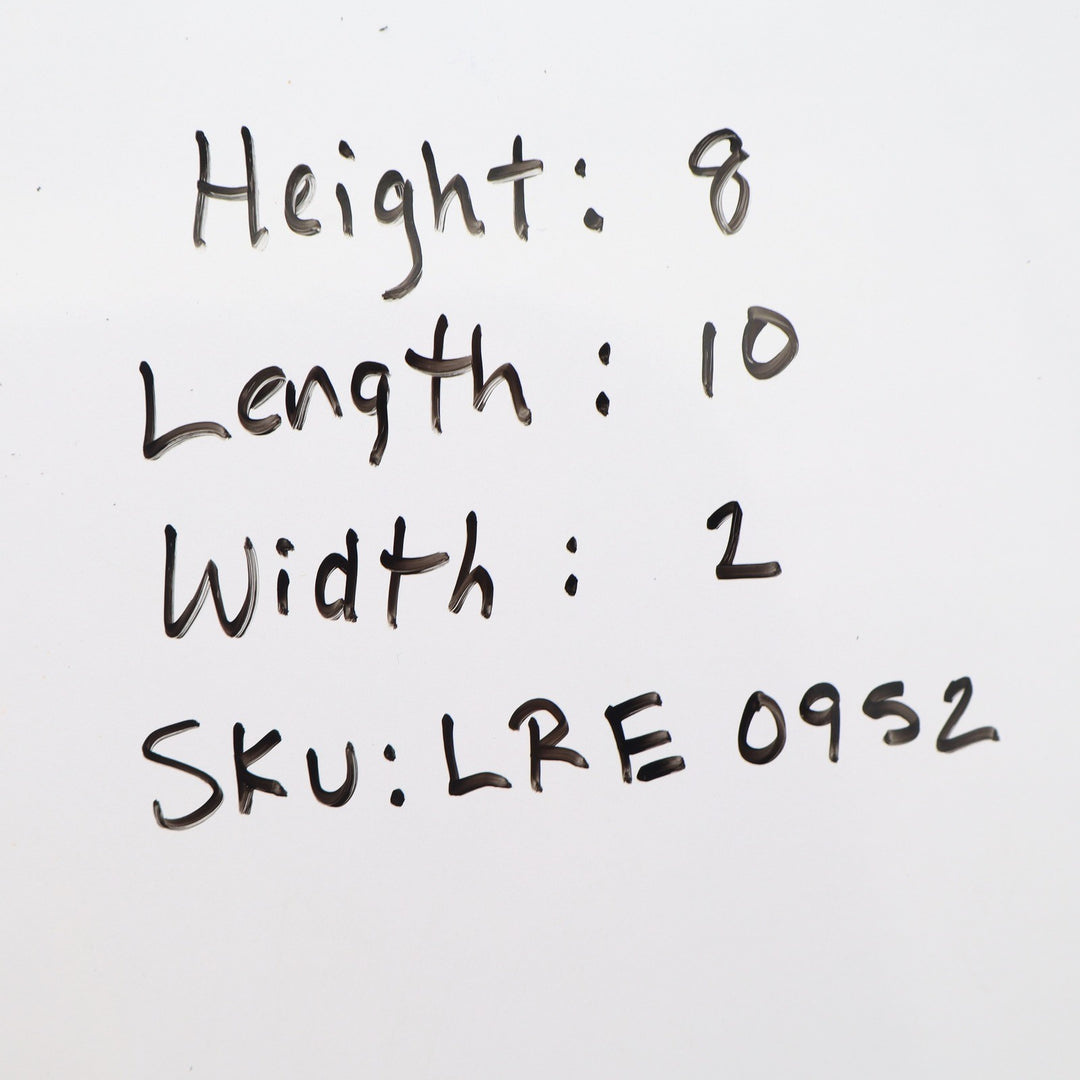 Height: 8
Length: 10
Width: 2
SKU: LRE 0952